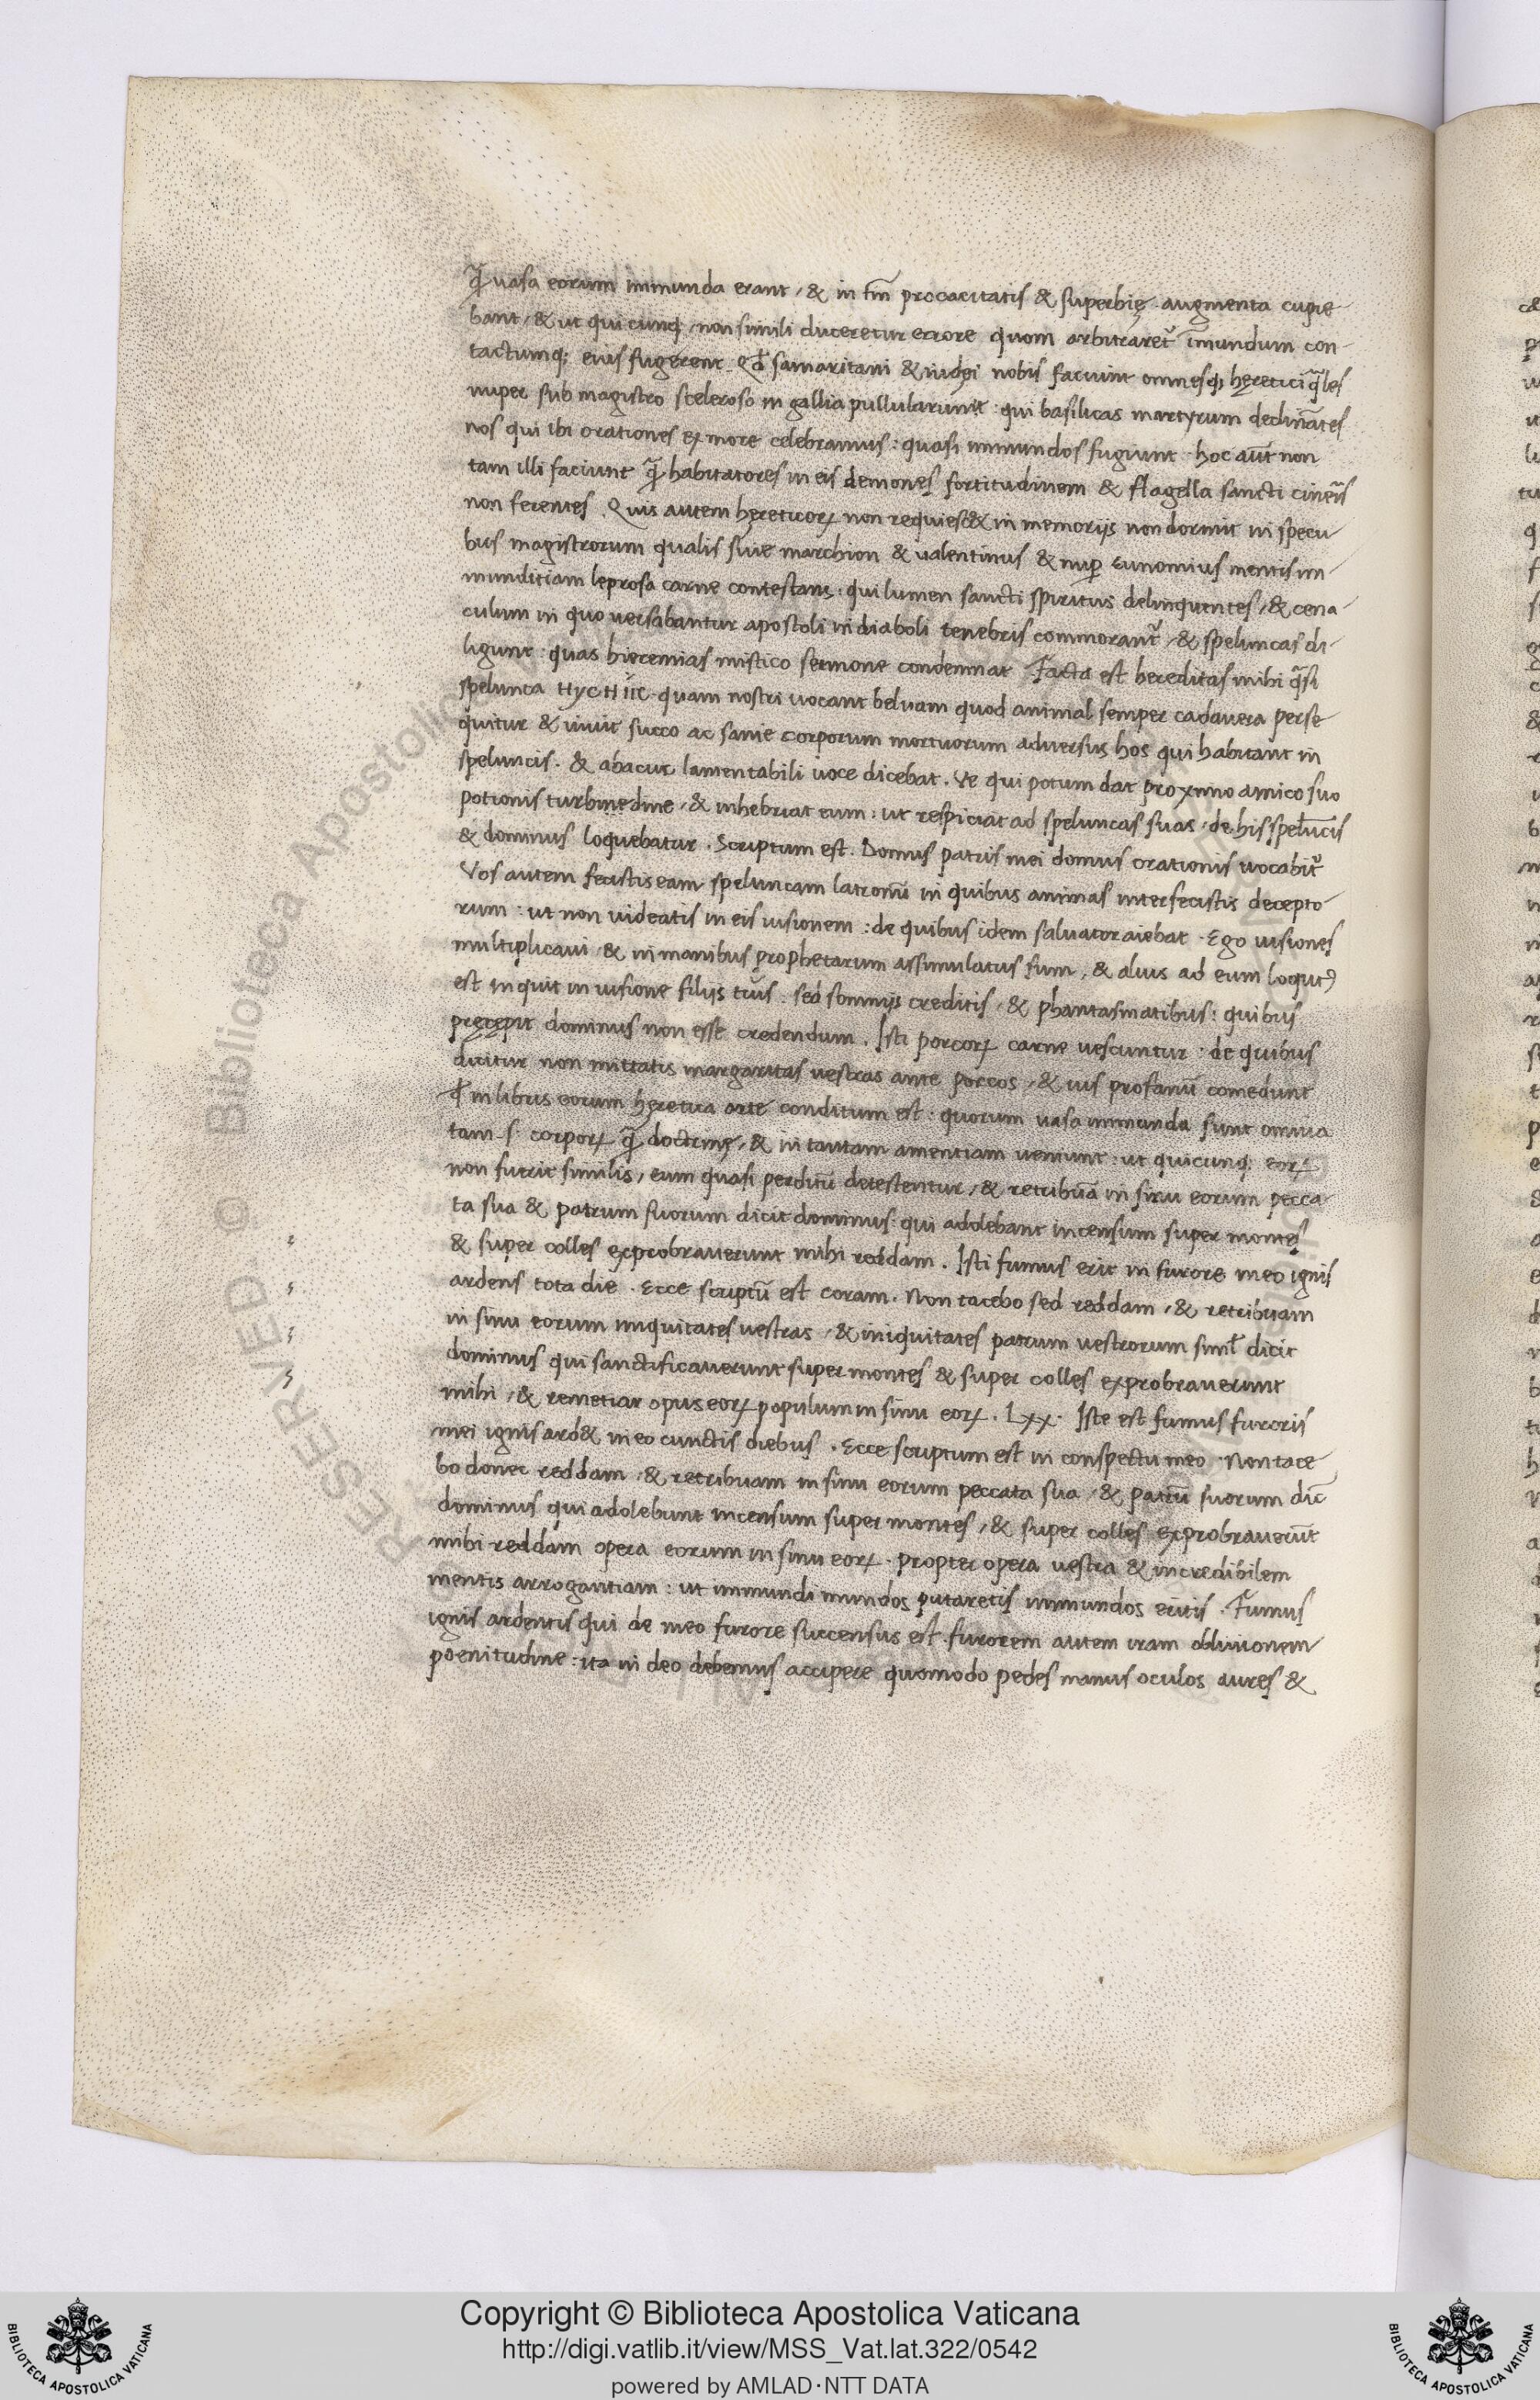 Qᷓ uasa eorum immunda erant, & in tm̄ procacitatis & superbię augmenta cupie-
bant, & ut quicunqꝫ non simili duceretur errore quom arbitraret᷑ īmundum con-
tactumqꝫ eius fugerent. Qđ samaritani & iudęi nobis faciunt omnesqꝫ hęretici q̄les
nuper sub magistro sceleroso in gallia pullularunt: qui basilicas martyrum declinātes
nos qui ibi orationes ex more celebramus: quasi immundos fugiunt. hoc aūt non
tam illi faciunt q̄ habitatores in eis demones fortitudinem & flagella sancti cineris
non ferentes. Quis autem hęreticoꝝ non requiesc& in memorijs non dormit in specu-
bus magistrorum qualis fuit marchion & ualentinus & nuꝑ eunomius mentis im-
munditiam leprosa carne contestans: qui lumen sancti spiritus delinquentes, & cena-
culum in quo uersabantur apostoli in diaboli tenebris commorant᷑, & speluncas di-
ligunt: quas hieremias mistico sermone condemnat. Facta est hereditas mihi q̄si
spelunca quam nostri uocant beluam quod animal semper cadauera perse-
quitur & uiuit succo ac sanie corporum mortuorum aduersus hos qui habitant in
speluncis. & abacuc lamentabili uoce dicebat. Ve qui potum dat proximo amico suo
potionis turbinedine, & inhebriat eum: ut respiciat ad speluncas suas, de his spelūcis
& dominus loquebatur. Scriptum est. Domus patris mei domus orationis uocabit᷑
Vos autem fecistis eam speluncam latronū in quibus animas interfecistis decepto-
rum: ut non uideatis in eis uisionem: de quibus idem saluator aiebat. Ego uisiones
multiplicaui, & in manibus prophetarum assimulatus sum, & alius ad eum loqutꝰ
est inquit in uisione filijs tuis. sed somnijs creditis, & phantasmatibus: quibus
pręcepit dominus non esse credendum. Isti porcoꝝ carne uescuntur: de quibus
dicitur non mittatis margaritas uestras ante porcos, & ius profanū comedunt
qđ in libris eorum hęretica arte conditum est: quorum uasa immunda sunt omnia
tam .s. corpoꝝ q̄ doctrinę, & in tantam amentiam ueniunt: ut quicunqꝫ eoꝝ
non fuerit similis, eum quasi perditū detestentur, & retribuā in sinu eorum pecca-
ta sua & patrum suorum dicit dominus: qui adolebant incensum super montes
& super colles exprobrauerunt mihi reddam. Isti fumus erit in furore meo ignis
ardens tota die. Ecce scriptū est coram. Non tacebo sed reddam, & retribuam
in sinu eorum iniquitates uestras, & iniquitates patrum uestrorum simul dicit
dominus qui sanctificauerunt super montes & super colles exprobrauerunt
mihi, & remetiar opus eoꝝ populum in sinu eoꝝ. Lxx. Iste est fumus furoris
mei ignis ard& in eo cunctis diebus. Ecce scriptum est in conspectu meo. Non tace
bo donec reddam, & retribuam in sinu eorum peccata sua, & patrū suorum dic̄
dominus qui adolebunt incensum super montes, & super colles exprobrauerūt
mihi reddam opera eorum in sinu eoꝝ. propter opera uestra & incredibilem
mentis arrogantiam: ut immundi mundos putaretis immundos eritis. Fumus
ignis ardentis qui de meo furore succensus est. furorem autem iram obliuionem
poenitudine: ita in deo debemus accipere quomodo pedes manus oculos aures &
Copyright © Biblioteca Apostolica Vaticana
http://digi.vatlib.it/view/MSS_Vat.lat.322/0542
powered by AMLAD·NTT DATA